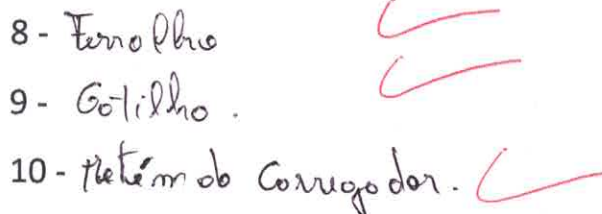 8 - Ferrolho
9 - Gatilho.
10 - Retém do Carregador.